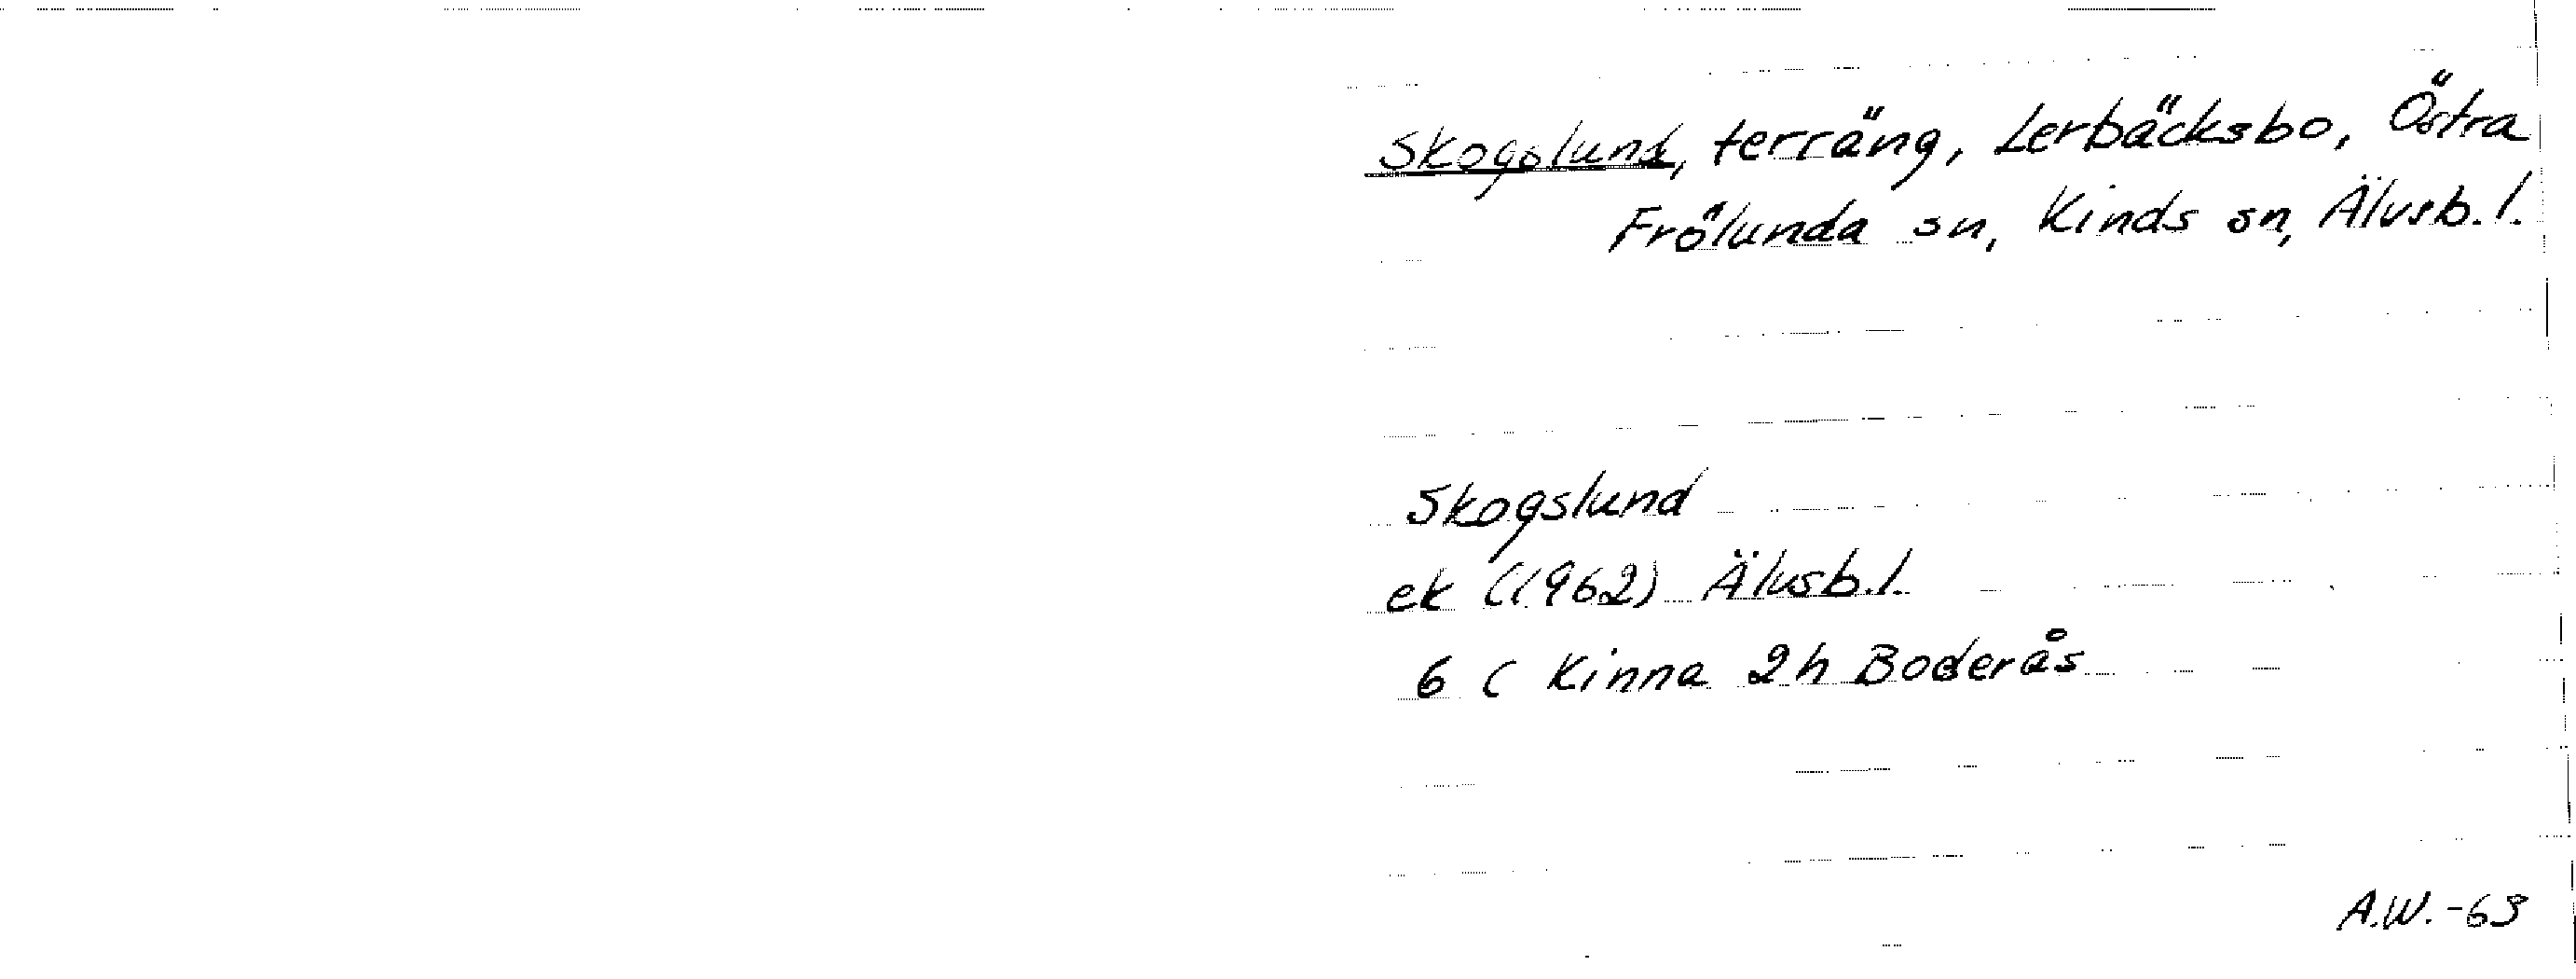 Skogslund, terräng, Lerbäcksbo, Östra
Frölunda sn, Kinds sn, Älvsb. l.
Skogslund
ek (1962) Älvsb. l.
6 C Kinna 2h Boderås
A.W. -63